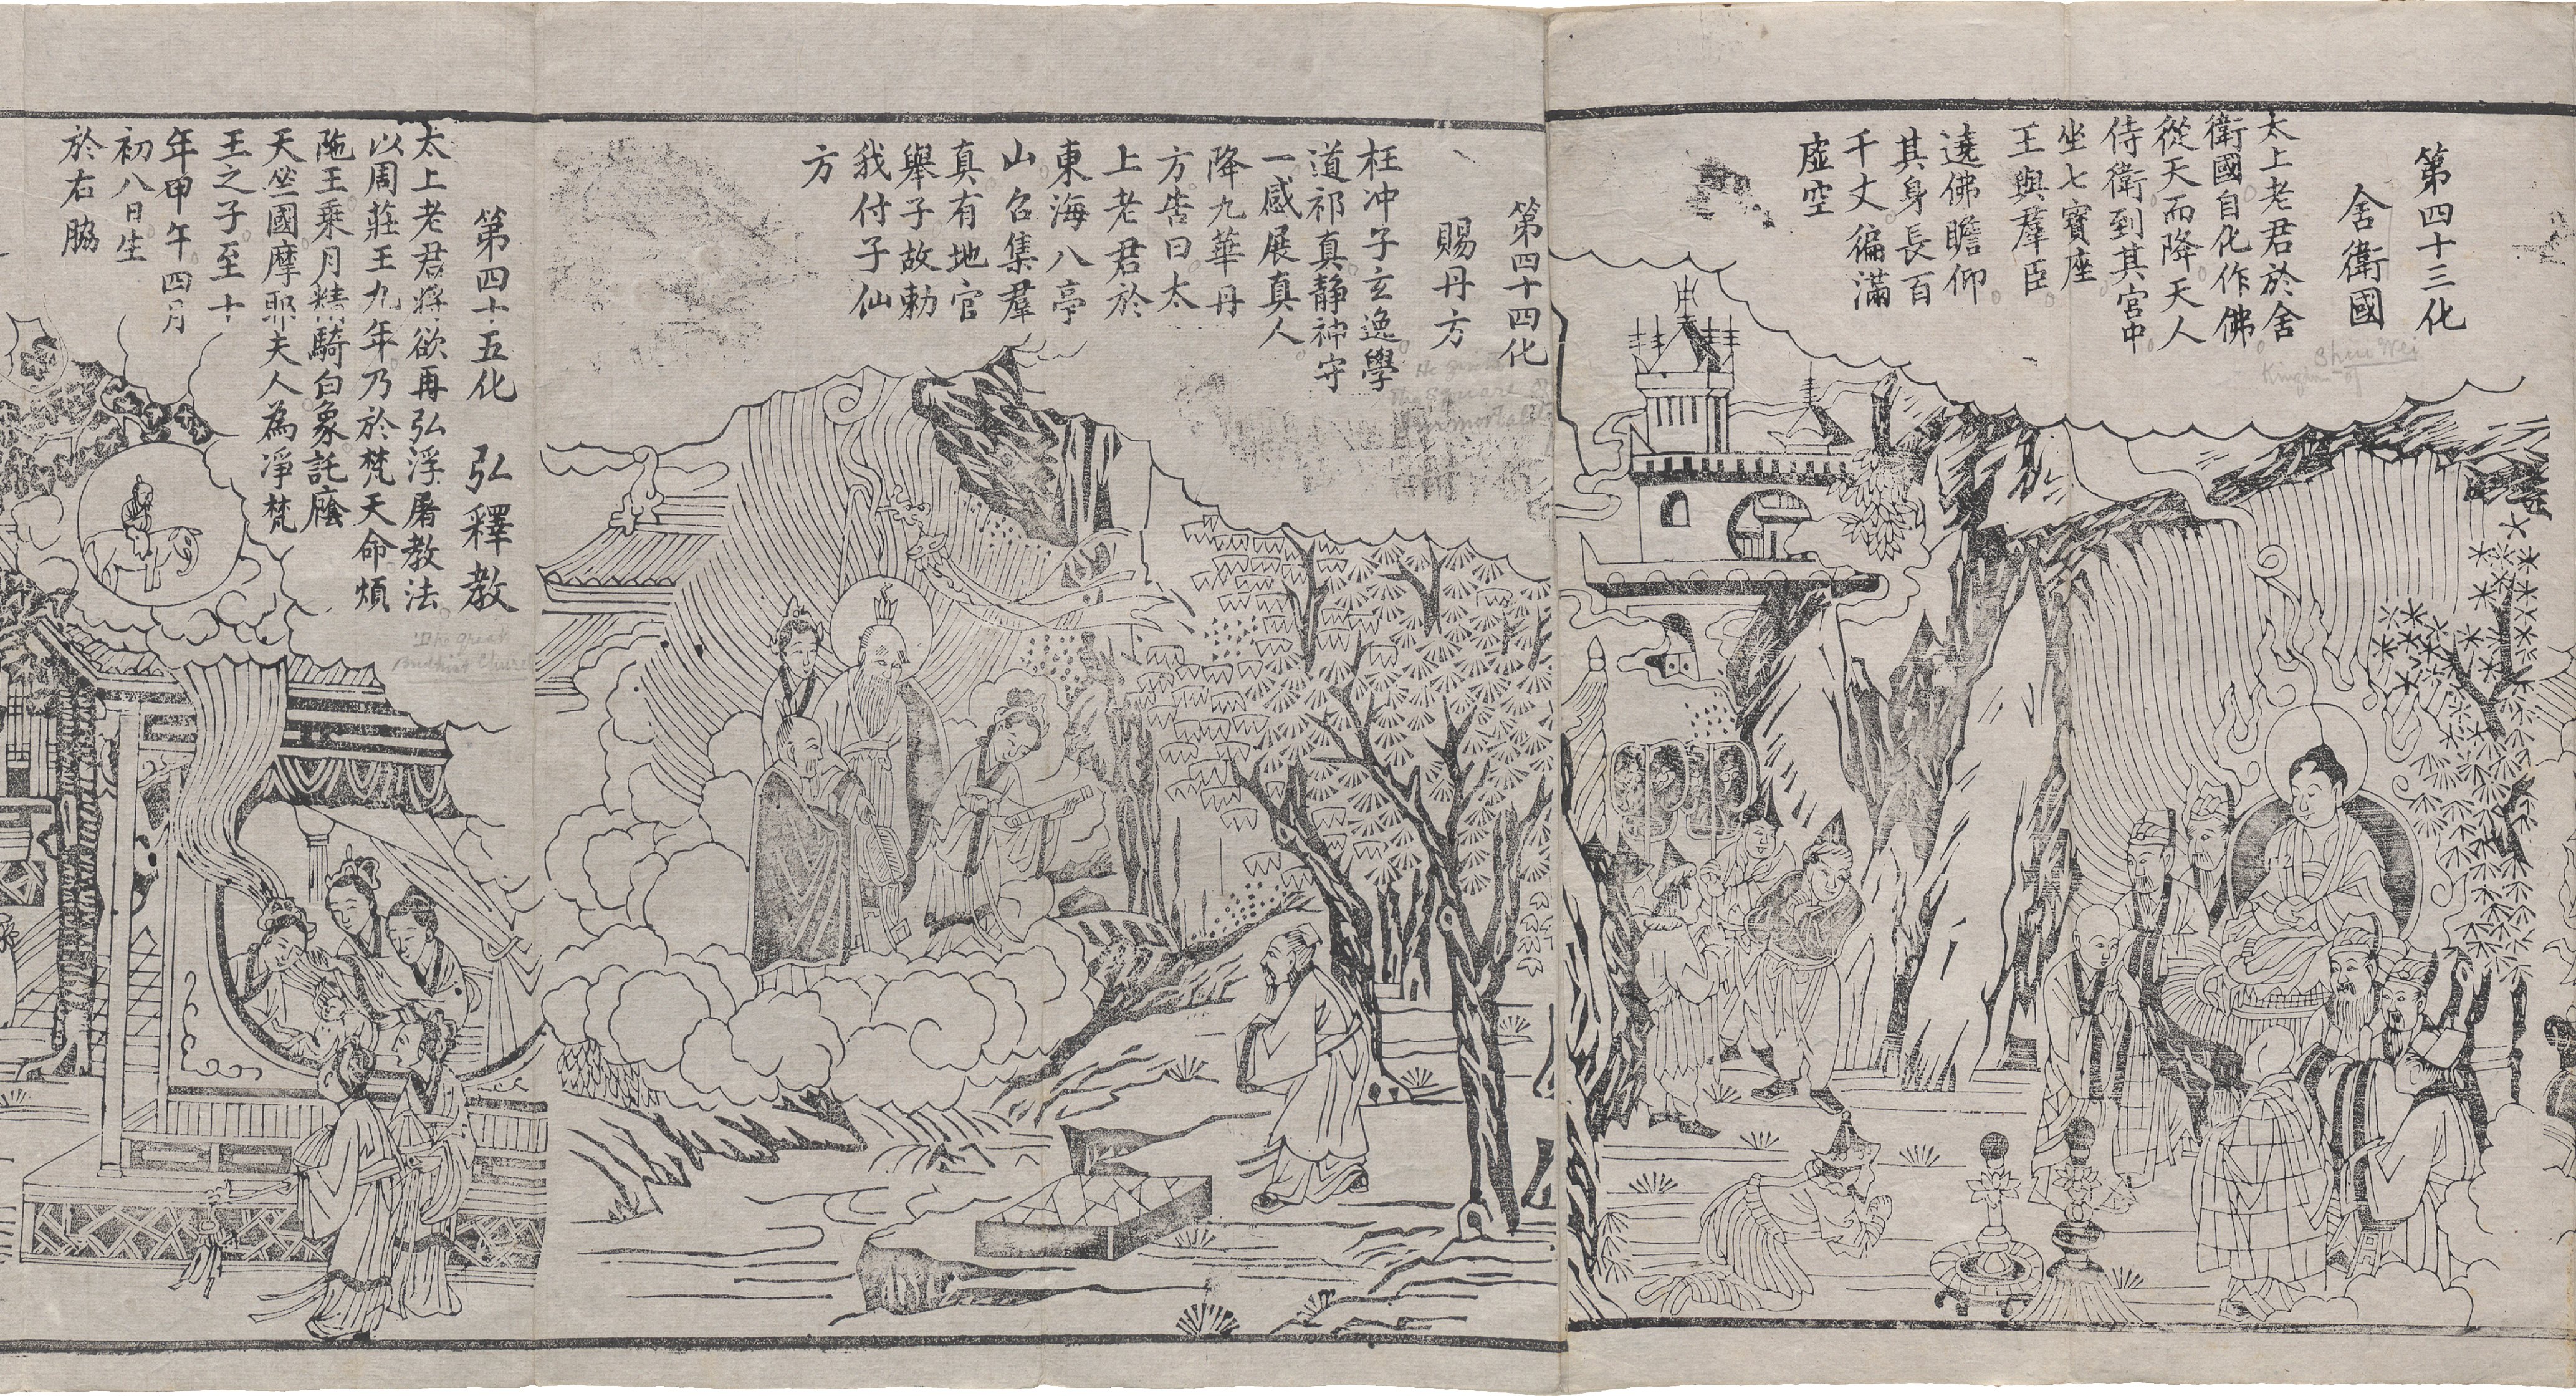 第四十三化
舍衛國
太上老君於舍
衛國自化作佛
從天而降天人
侍衛到其宮中
坐七寶座
王與羣臣
遶佛瞻仰
其身長百
千丈徧滿
虛空
Shui Wei
Kingdom of
第四十四化
賜丹方
枉冲子玄逸學
道祁真静神守
一感展真人
降九華丹
方告曰太
上老君於
東海八亭
山召集羣
真有地官
舉子故勅
我付子仙
方
He
the square
immortal
第四十五化 弘釋教
太上老君將欲再弘浮屠教法
以周莊王九年乃於梵天命煩
陁王乗月精騎白象託廕
天竺國摩耶夫人為淨梵
王之子至十
年甲午四月
初八日生
於右脇
The great
Budhist